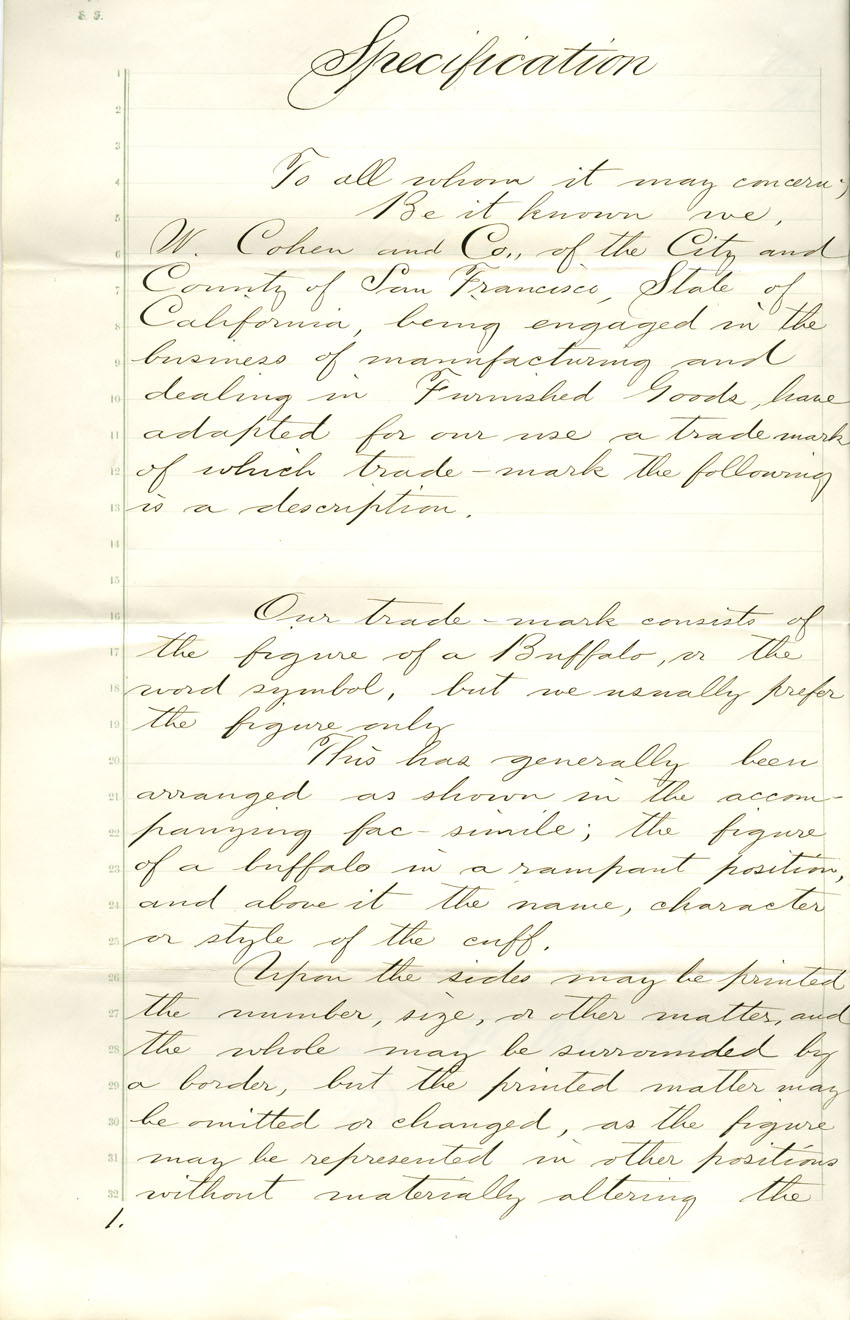 Specification
1
2
3
4 To all whom it may concern;
5 Be it known we,
6 W. Cohen and Co., of the City and
7 County of San Francisco, State of
8 California, being engaged in the
9 business of mannfacturing and
10 dealing in Furnished Goods, have
11 adapted for our use a trade mark
12 of which trade-mark the following
13 is a description.
14
15
16 Our trade-mark consists of
17 the figure of a Buffalo, or the
18 word symbol, but we usually prefer
19 the figure only
20 This has generally been
21 arranged as shown in the accom-
22 panying fac-simile; the figure
23 of a buffalo in a rampant position,
24 and above it the name, character
25 or style of the cuff.
26 Upon the sides may be printed
27 the number, size, or other matter, and
28 the whole may be surrounded by
29 a border, but the printed matter may
30 be omitted or changed, as the figure
31 may be represented in other positions
32 without materially altering the
1.